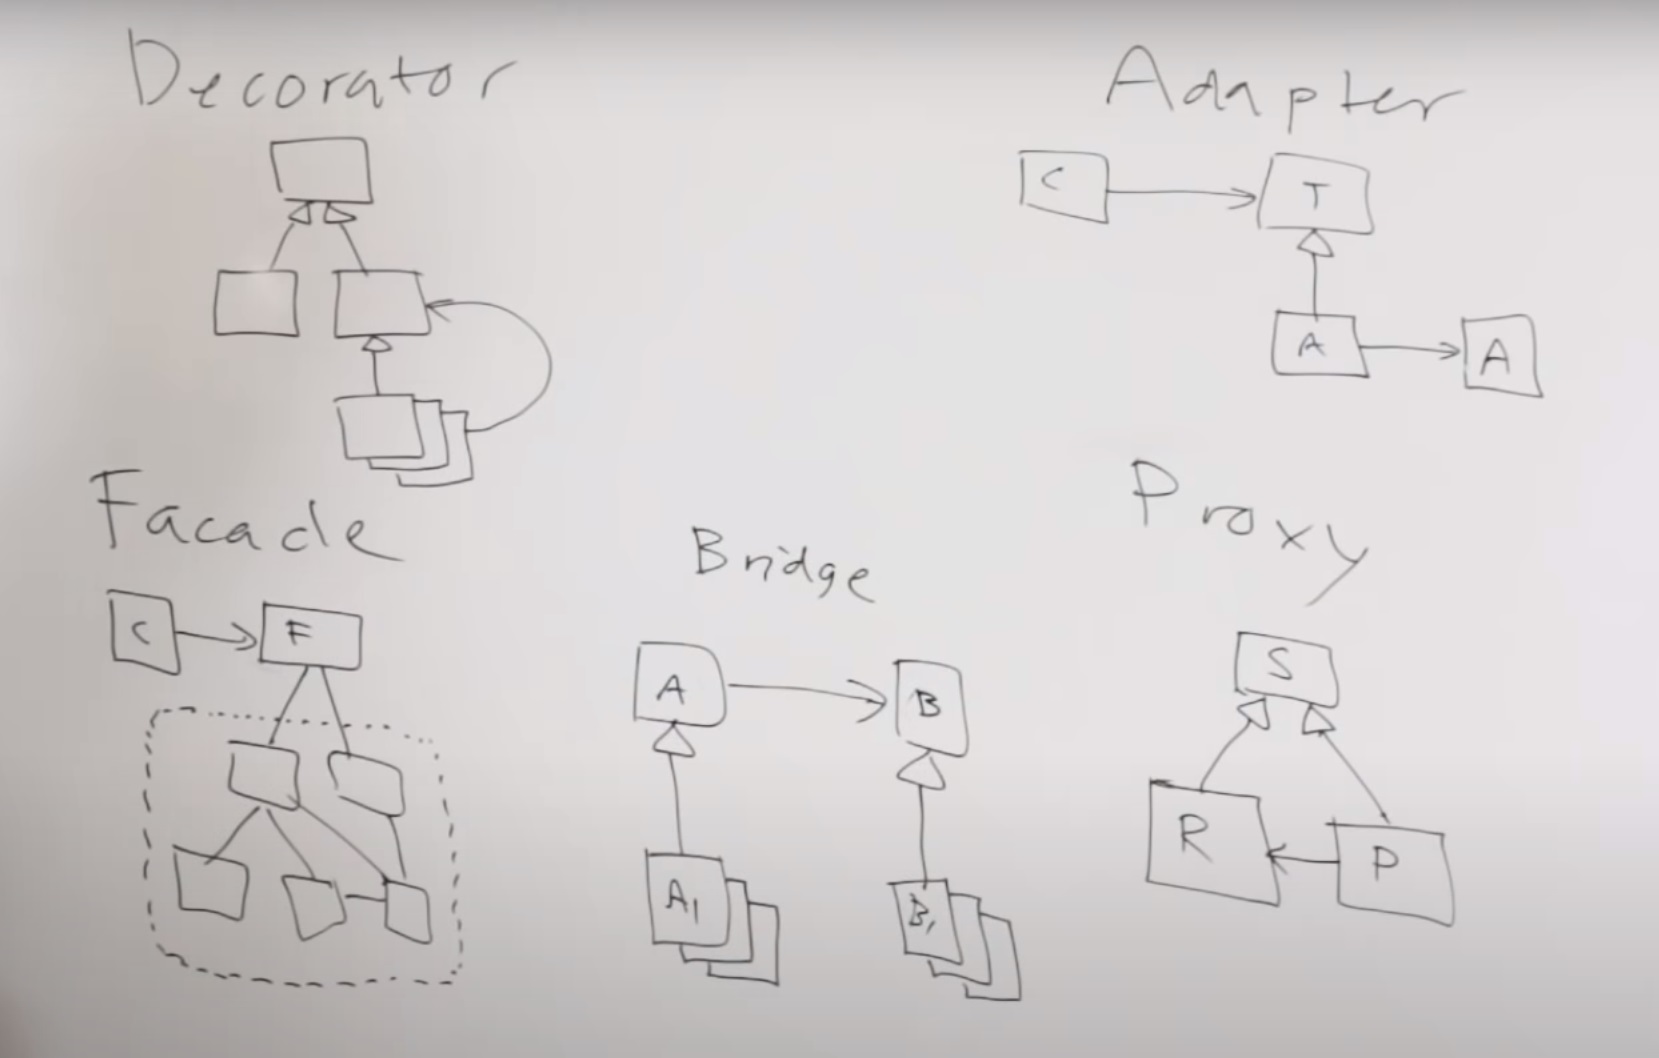 Decorator
Adapter
C
T
A
A
Facade
C
F
Bridge
A
B
A1
B1
Proxy
S
R
P